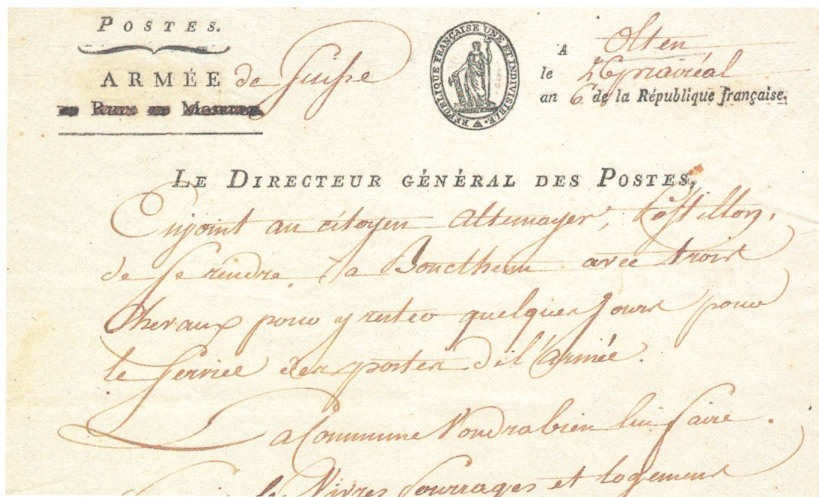 POSTES.
ARMÉE de Suisse
DU RHIN ET MOSELLE
RÉPUBLIQUE FRANÇAISE UNE ET INDIVISIBLE.
A Olten
le 26 prairéal
an 6. de la République française.
LE DIRECTEUR GÉNÉRAL DES POSTES,
Enjoint au citoyen Altemayer, Postillon,
de se rendre à avec trois
Chevaux pour y rester quelques jours pour
le Service des postes de l'armée.
La Commune Voudra bien lui faire
les Vivres fourrages et logement